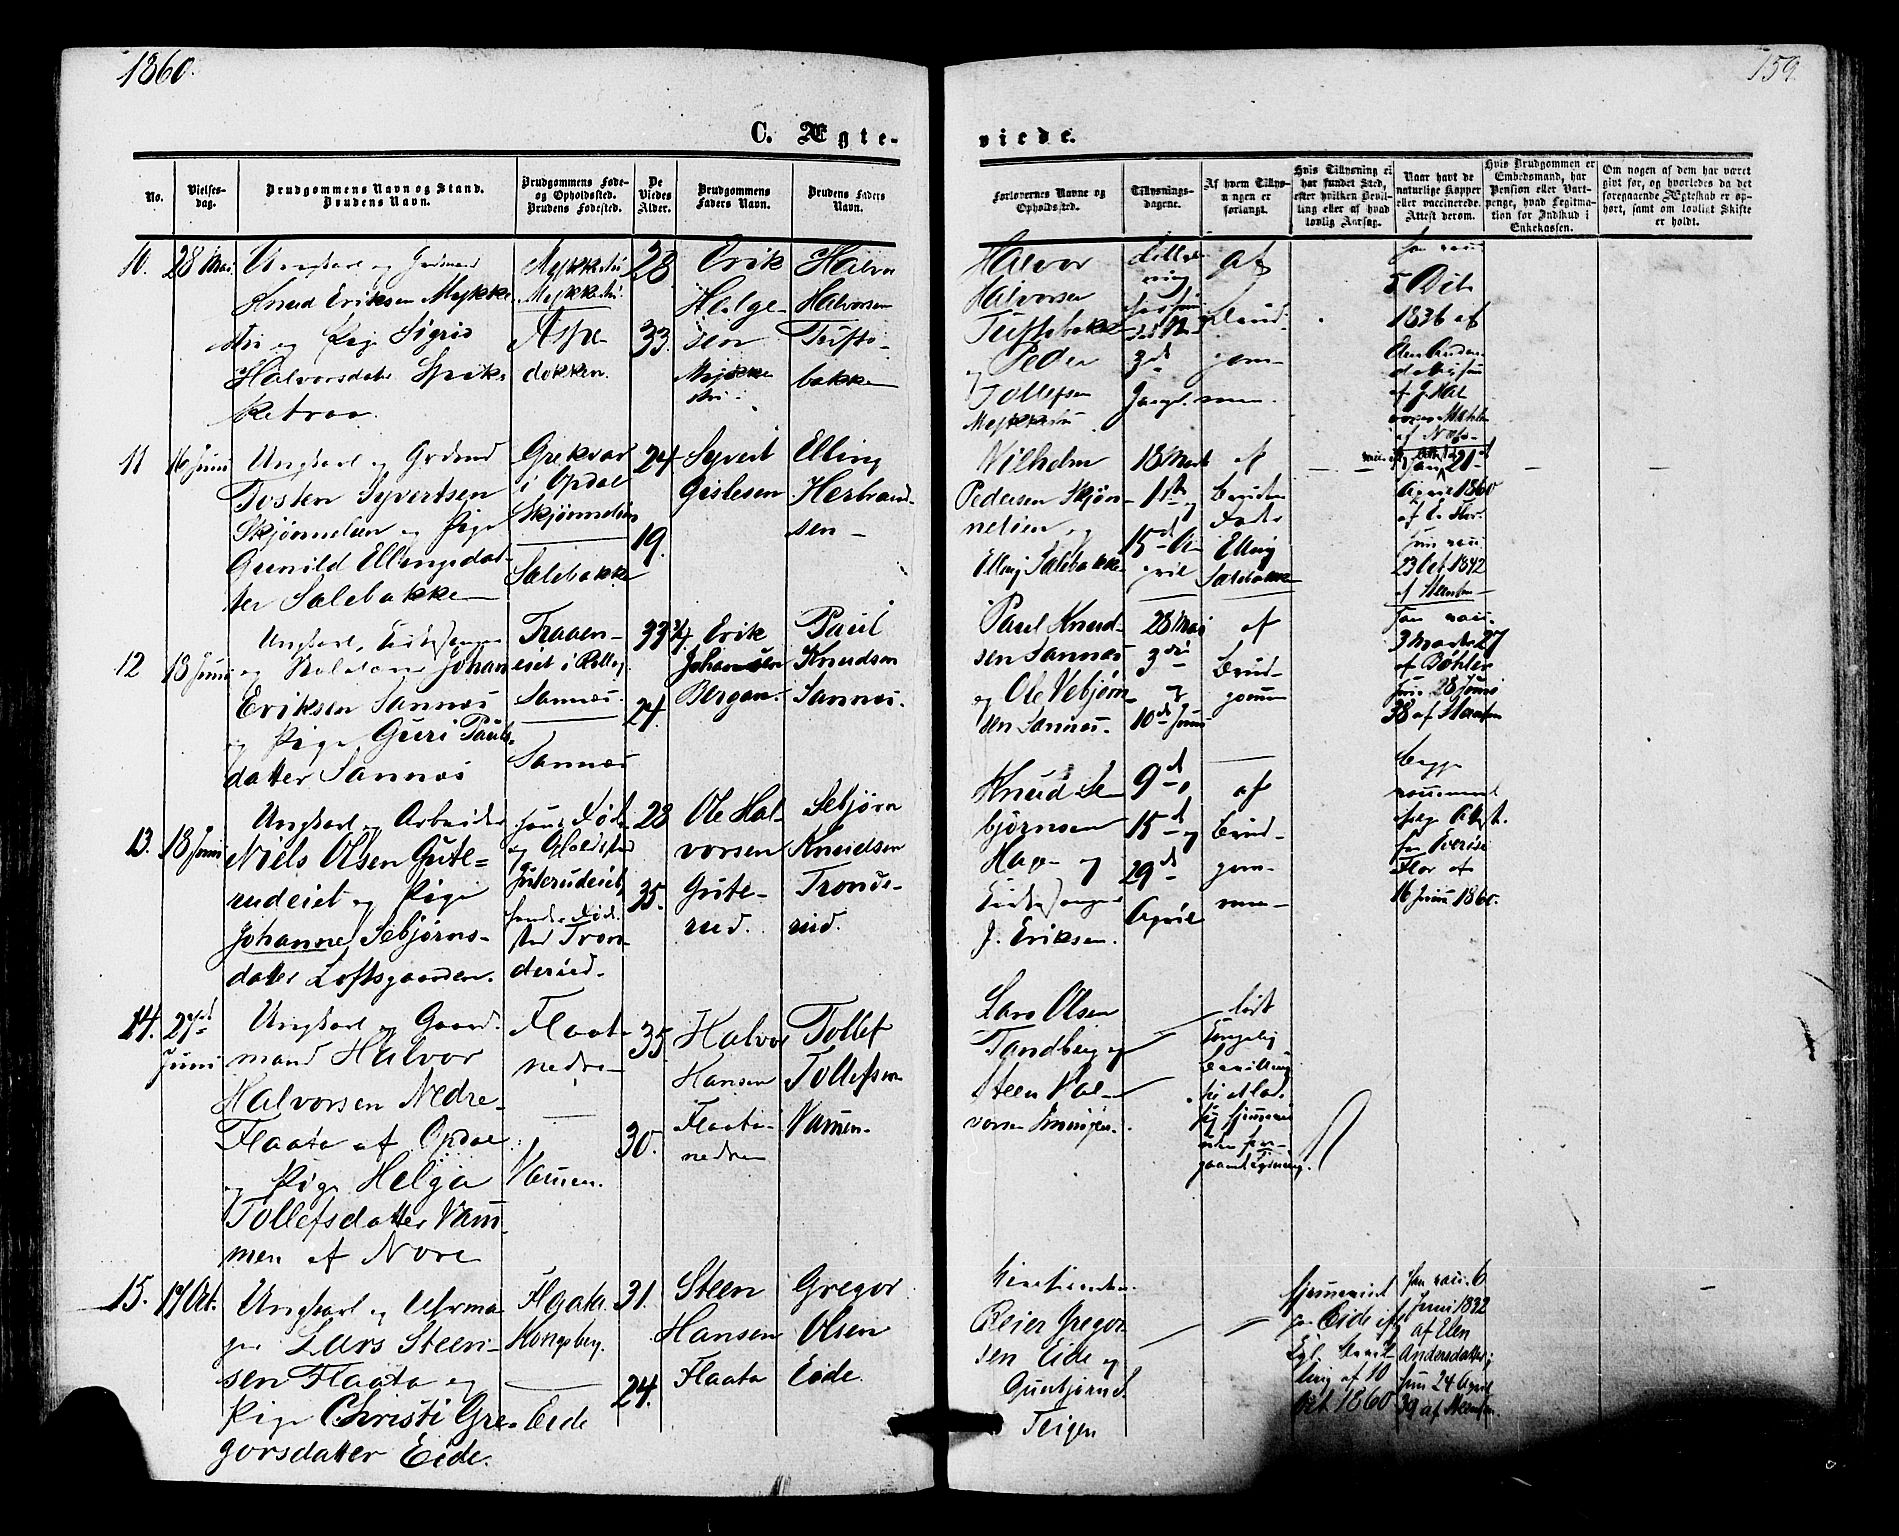 1860.
159.
C. Ægte-
viede.
No.
Vielses-
dag.
Brudgommens Navn og Stand.
Brudens Navn.
Brudgommens Føde-
og Opholdssted.
Brudens Fødested.
De
Viedes
Alder.
Brudgommens
Faders Navn.
Brudens Faders
Navn.
Forlovernes Navne og
Opholdssted.
Tillysnings-
dagene.
Af hvem Tillys-
ningen er
forlangt.
Hvis Tillysning ei
har fundet Sted,
efter hvilken Bevil-
ling eller af hvad
lovlig Aarsag.
Naar havt de
naturlige Kopper
eller vaccinerede.
Attest derom.
Hvis Brudgommen er
Embedsmand, har
Pension eller Vart-
penge, hvad Legitima-
tion for Indskud i
Enkekassen.
Om nogen af dem har været
givt før, og hvorledes da det
foregaaende Ægteskab er op-
hørt, samt om lovligt Skifte
er holdt.
10.
28 Mai
Ungkarl og
Knud Eriksen Mykke-
stu og Pige Sigrid
Halvorsdatter
Mykkestu
Mykkestu.
Aspe-
dokken.
28
33
Erik
Helge-
sen
Mykke
stu.
Halvor
Halvorsen
Tufte-
bakken
Halvor
Halvorsen
Tuftebakken
og Peder
Tollefsen
Mykkestu
3d
af
Brud-
gom-
men.
5 Oct
1836 af
af Nore
11
16 Juni
Ungkarl og Grdmd
Tosten Syvertsen
Skjønnelien og Pige
Gunild Ellingsdat-
ter Sælebakke
i Opdal
Skjønnelien
Sælebakke
24
19.
Syvert
Gislesen
Elling
Herbrand-
sen
Vilhelm
Pedersen Skjøn-
nelien og
Elling Sælebakke
18 Marts
1ste og
15d A-
pril
af
Brudens
Fader
Elling
Sælebakke
21d
April 1860
23 Oct 1842
af Steensen
12
13 Juni
Ungkarl, Kirkesanger
og Skolelærer Johan
Eriksen Sannæs
og Pige Guri Pauls-
datter Sannæs
Traaen-
eiet i Rollag
Sannæs.
Sannæs
33 3/4.
24.
Erik
Johansen
Bergan.
Paul
Knudsen
Sannæs.
Paul Knud-
sen Sannæs
og Ole Vebjørn-
sen Sannæs.
28 Mai
3die
og
10de Juni
af
Brud-
gom
3 Marts 27
af Bøhler
28 Juni
38 af Steensen
13.
18 Juni
Ungkarl og Arbeider
Niels Olsen Gute-
rudeiet og Pige
Johanne Sebjørns-
datter Loftsgaarden.
hans Føde
og Opholdssted
Guterudeiet,
hendes Føde-
sted Tron-
derud.
28
35.
Ole Hal-
vorsen
Gute-
rud.
Sebjørn
Knudsen
Tronde-
rud.
Knud Se-
bjørnsen
Haga og
Kirkesanger
J. Eriksen.
9d
15d og
29d
April
af
Brud-
gom-
men
begge
vaccineret
ifølge Attest
16 Juni 1860.
14.
27d
Juni
Ungkarl og Gaard-
mand Halvor
Halvorsen Nedre-
Flaata af Opdal
og Pige Helga
Tollefsdatter Væm-
men af Nore
Flaata
nedre
Væmen.
35
30.
Halvor
Hansen
Flaata-
nedre
Tollef
Tollefsen
Væmen.
Lars Olsen
Tandberg og
Steen Hal-
vorsen
løst
Kongelig
Bevilling
15.
19 Oct.
Ungkarl og Uhrma-
ger Lars Steen-
sen Flaata og
Pige Christi Gre-
gorsdatter Eide.
Flaata.
Kongsberg.
Eide
31.
24.
Steen
Hansen
Flaata
Gregor
Olsen
Eide.
Reier Gregor-
sen Eide og
Gunbjørn
Teigen
hjemmeviet
paa Eide efter
Kgl. Bevil-
ling af 10
Oct 1860
6
Juni 1832
af Elen
Andersdatter;
24 April
39 af Steensen.